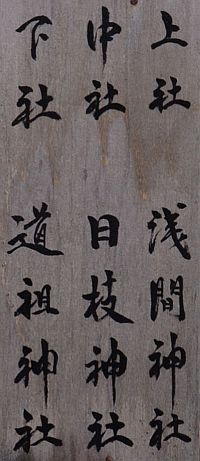 上社 浅間神社
中社 日枝神社
下社 道祖神社